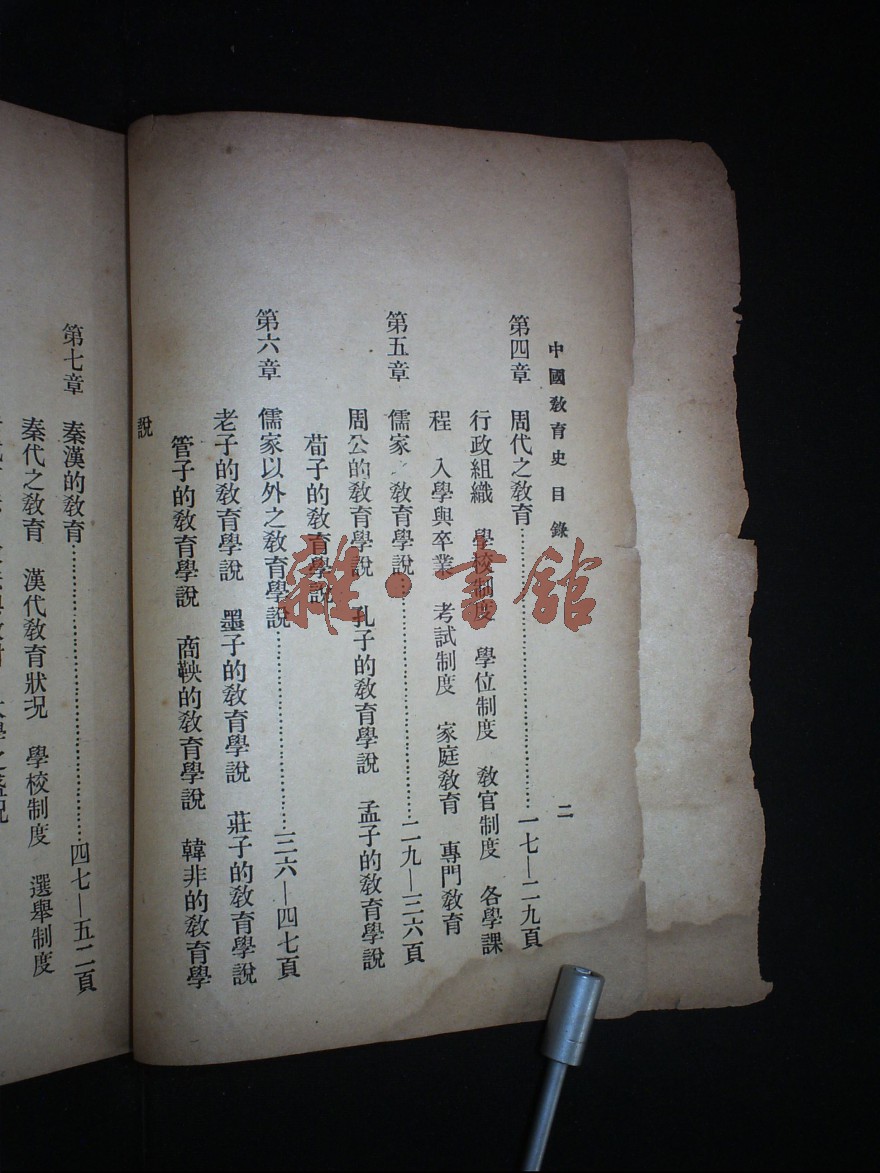 中國教育史 目錄
二
第四章 周代之教育……………………一七—二九頁
行政組織 學校制度 學位制度 教官制度 各學課
程 入學與卒業 考試制度 家庭教育 專門教育
第五章 儒家 教育學說……………………二九—三六頁
周公的教育學說 孔子的教育學說 孟子的教育學說
荀子的教育學說
第六章 儒家以外之教育學說……………………三六—四七頁
老子的教育學說 墨子的教育學說 莊子的教育學說
管子的教育學說 商鞅的教育學說 韓非的教育學
說
第七章 秦漢的教育……………………四七—五二頁
秦代之教育 漢代教育狀況 學校制度 選舉制度
雜·書館